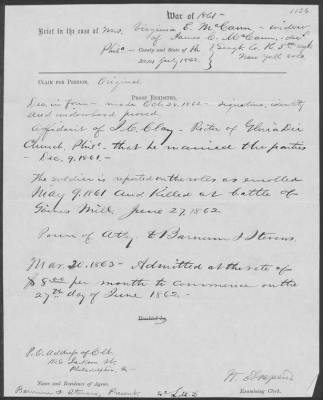 War of 1861
Brief in the case of Mrs. Virginia E. McCann - widow
of James C. McCann, dec'd
Phila - County and State of Pa
Co. H. 5th Regt
July 1862. New York Vols.
CLAIM FOR PENSION. Original
PROOF EXHIBITED.
Dec. in form - made Oct. 24. 1862 - signature, identity
and widowhood proved.
Affidavit of J. C. Clay - Rector of Gloria Dei
Church, Phila. that he married the parties
- Dec. 9. 1861 -
The soldier is reported on the rolls as enrolled
May 9. 1861 and Killed at battle of
Gaines Mill, June 27, 1862
Power of Atty to Barnum & Stevens.
Mar. 20. 1863 - Admitted at the rate of
$8.00 per month to commence on the
27th day of June 1862 -
P.O. Address of Clt
Philadelphia, Pa
Name and Residence of Agent.
Examining Clerk.
Barnum & Stevens, Present